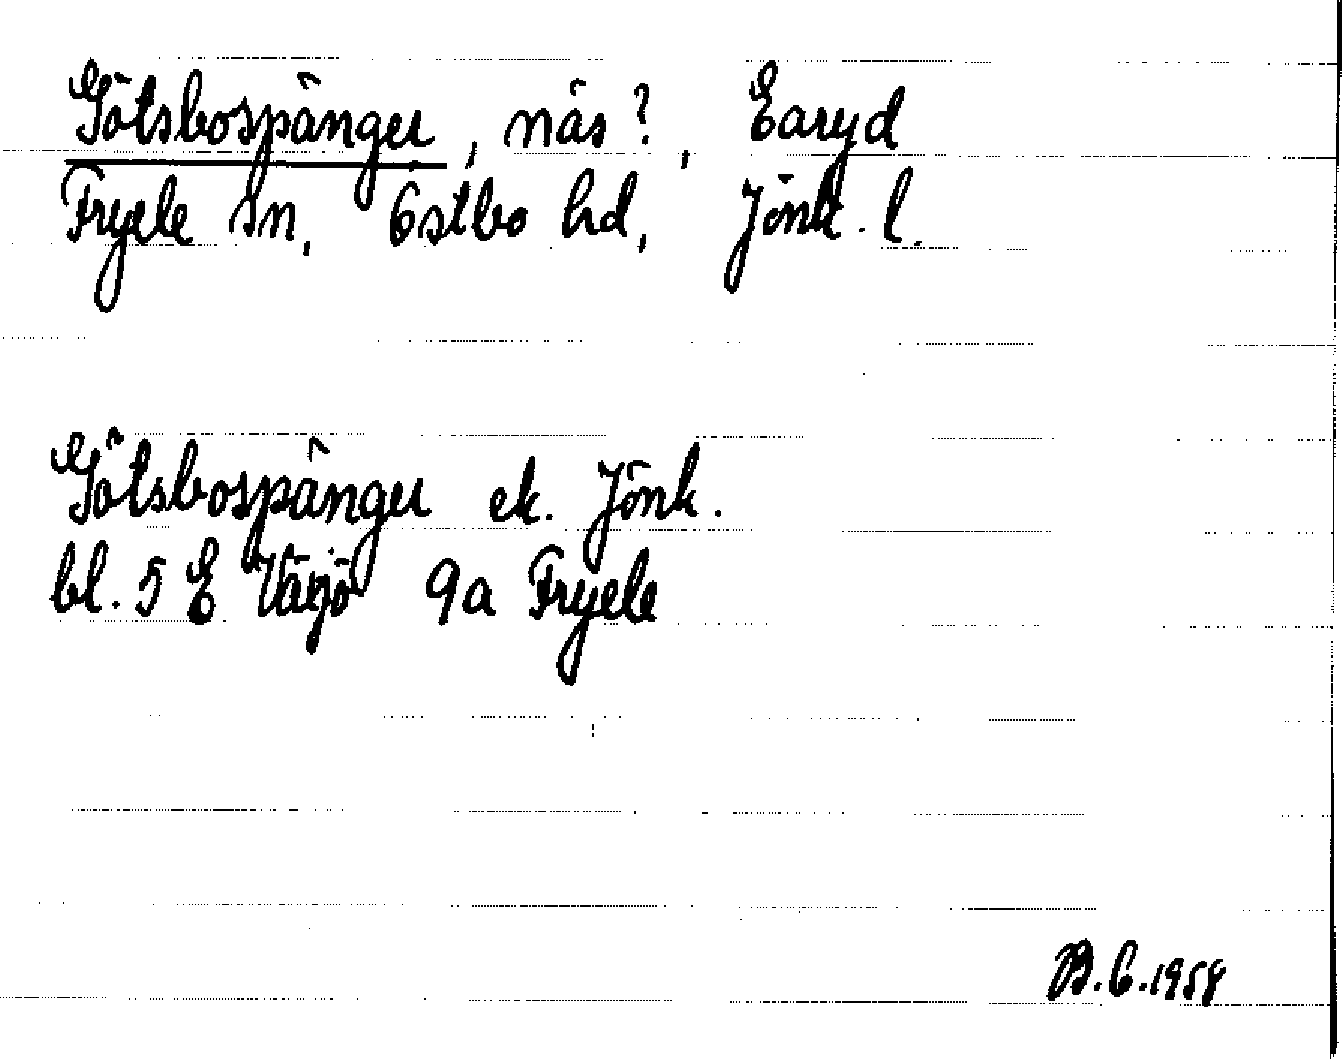 Götsbospånger, näs?, Earyd
Fryele sn, Östbo hd, Jönk. l.
Götsbospånger ek. Jönk.
bl. 5 E Växjö 9a Fryele
B.C. 1958